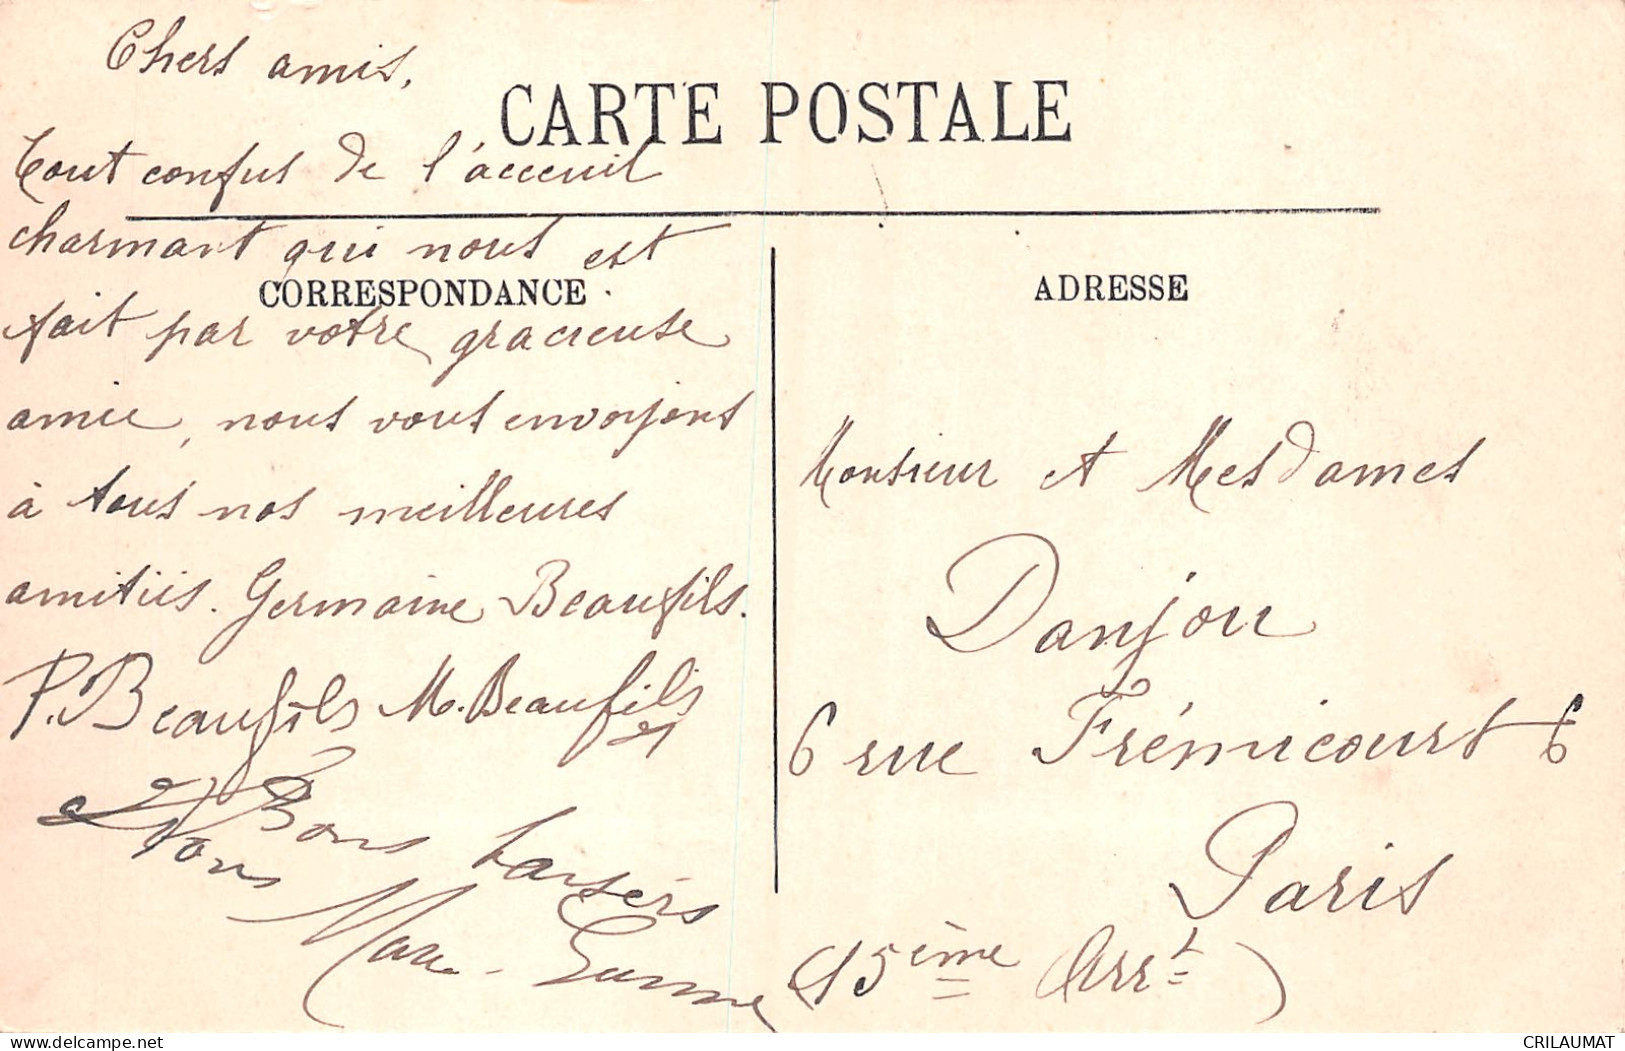 CARTE POSTALE
CORRESPONDANCE
ADRESSE
Chers amis,
Tout confus de l'acceuil
charmant qui nous est
fait par votre gracieuse
amie, nous vous envoyons
à tous nos meilleures
amitiés. Germaine Beaufils.
P. Beaufils M. Beaufils
Bons baisers
Marie
Monsieur et Mesdames
Danjou
6 rue Frémicourt 6
Paris
(15ème Arrt)
delcampe.net
CRILAUMAT